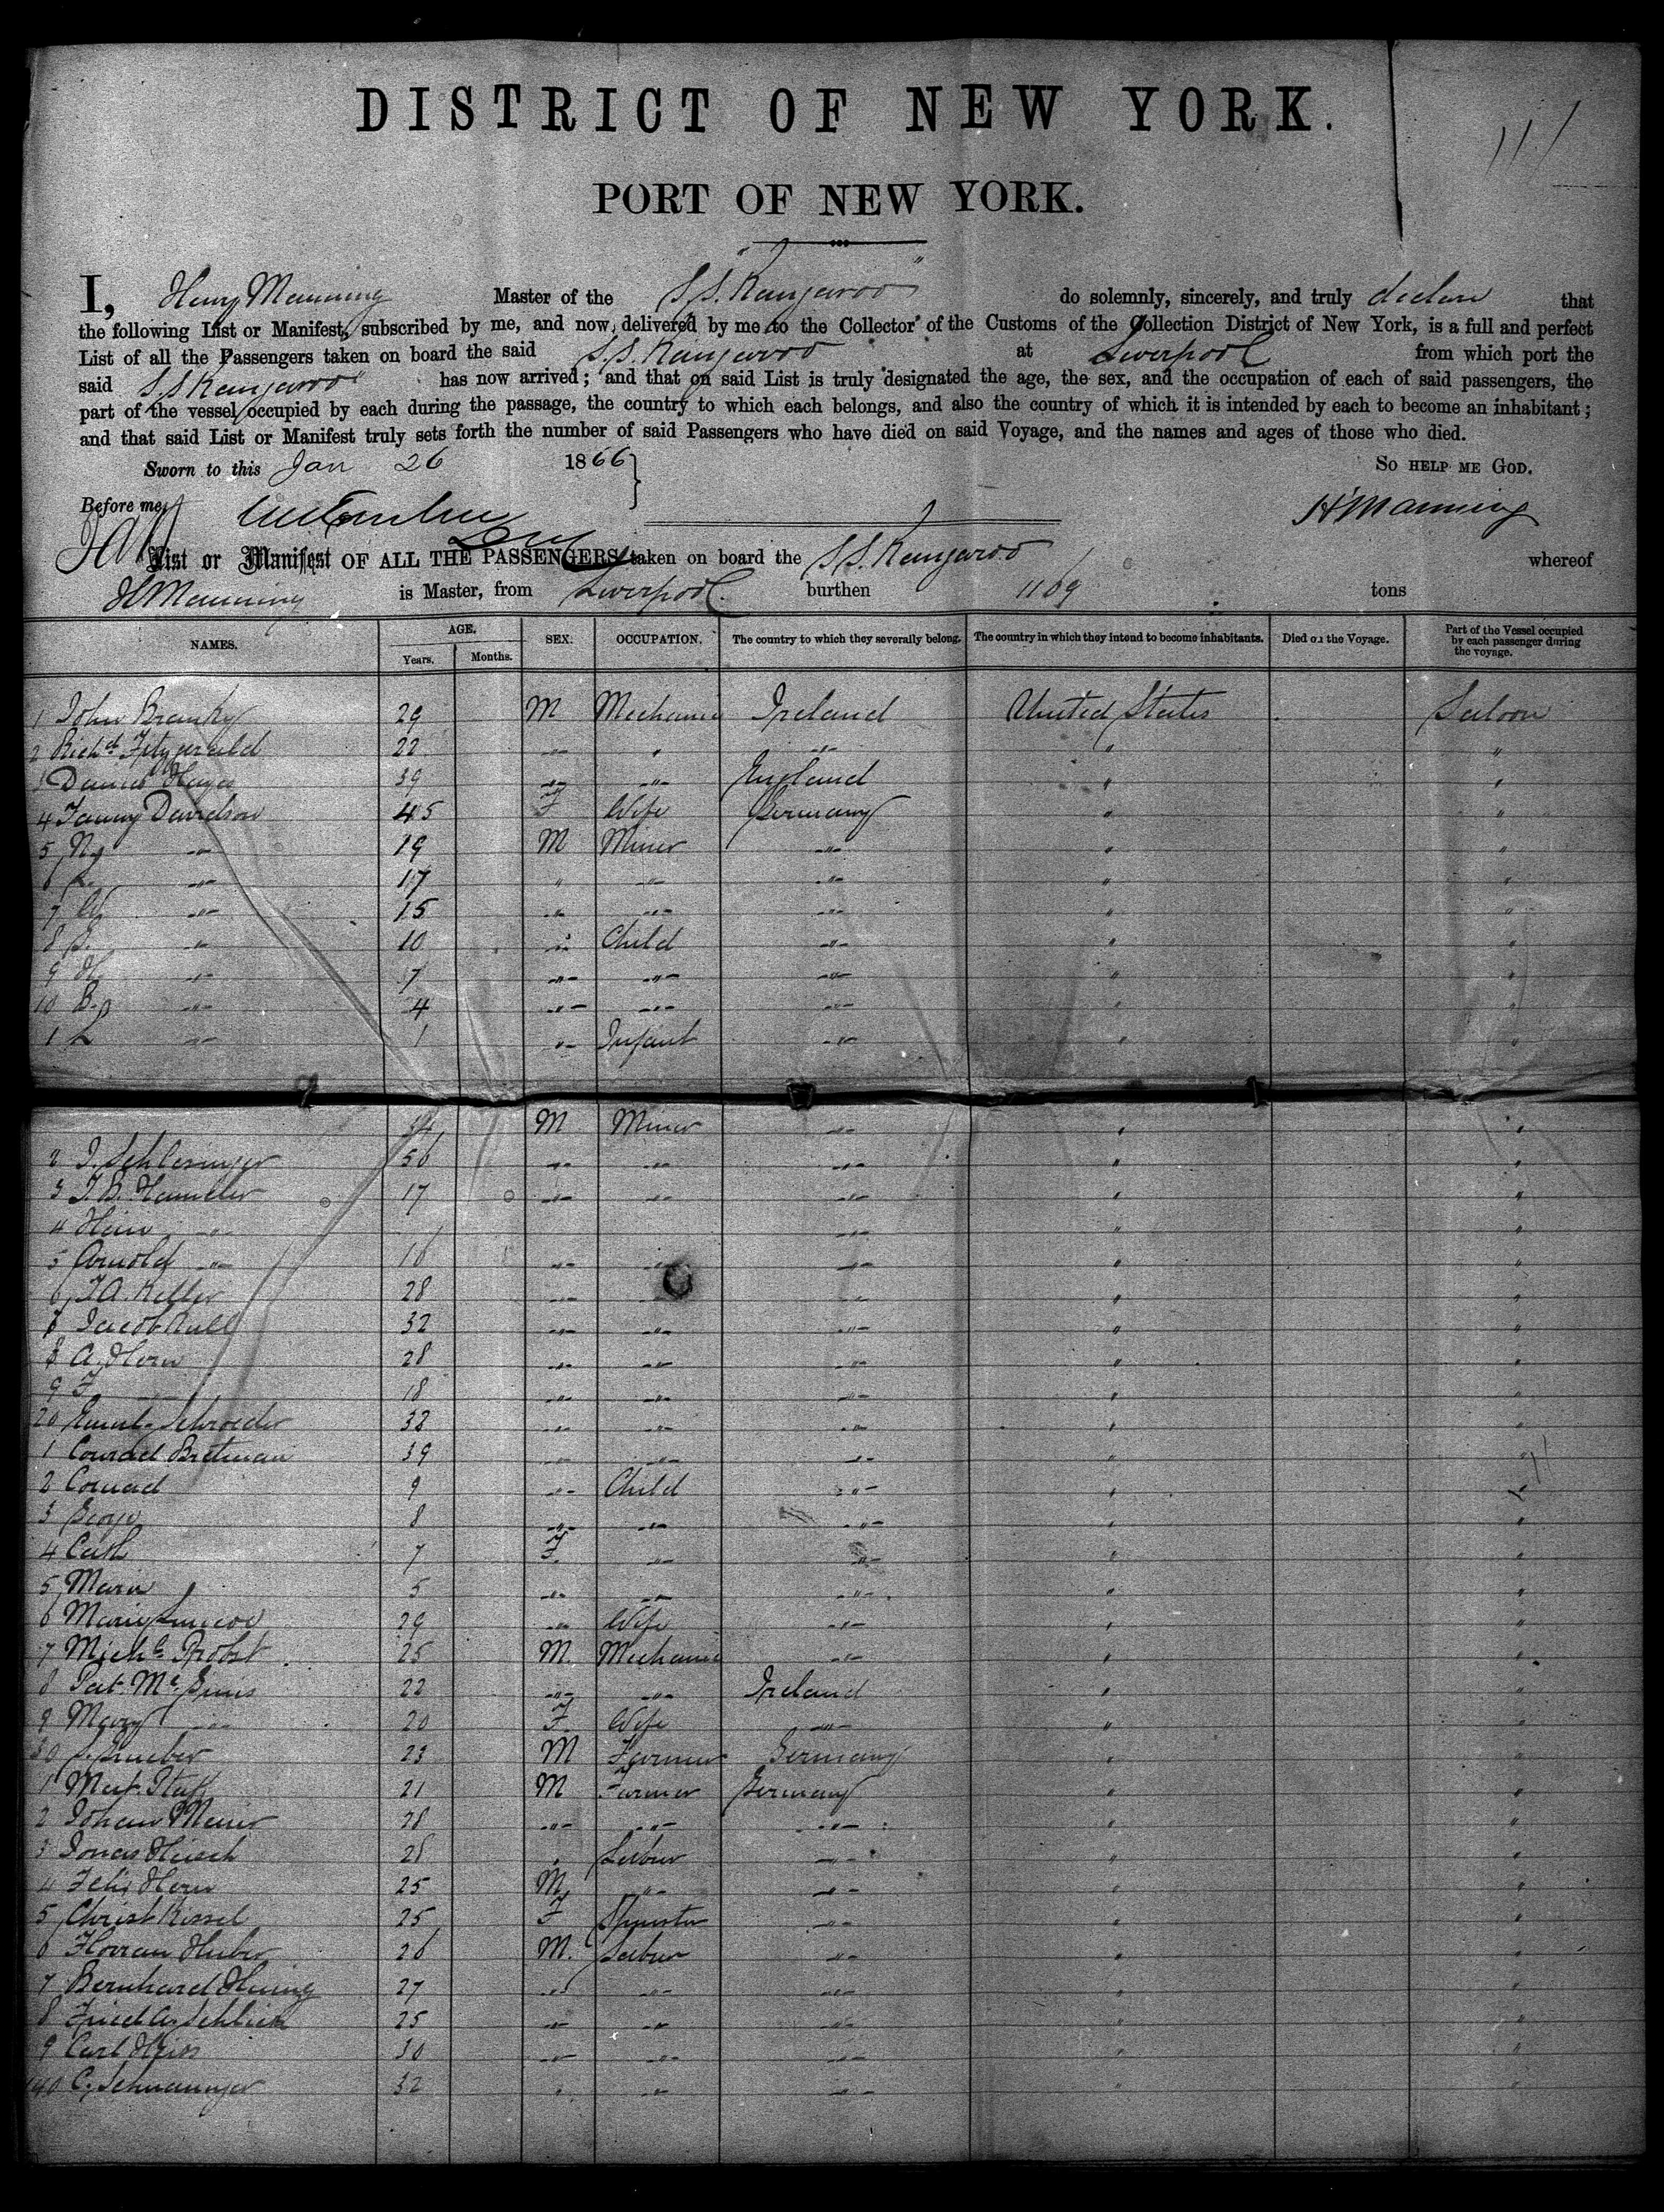 DISTRICT OF NEW YORK.
111
PORT OF NEW YORK.
I, Henry Manning Master of the "S.S. Kangaroo" do solemnly, sincerely, and truly declare that
the following List or Manifest, subscribed by me, and now delivered by me to the Collector of the Customs of the Collection District of New York, is a full and perfect
List of all the Passengers taken on board the said S.S. Kangaroo at Liverpool from which port the
said S.S Kangaroo has now arrived; and that on said List is truly designated the age, the sex, and the occupation of each of said passengers, the
part of the vessel occupied by each during the passage, the country to which each belongs, and also the country of which it is intended by each to become an inhabitant;
and that said List or Manifest truly sets forth the number of said Passengers who have died on said Voyage, and the names and ages of those who died.
Sworn to this Jan 26 1866 So help me God.
Before me, H Manning
List or Manifest OF ALL THE PASSENGERS taken on board the S.S. Kangaroo whereof
H Manning is Master, from Liverpool. burthen 1169 tons
NAMES. AGE. Years. Months. SEX. OCCUPATION. The country to which they severally belong. The country in which they intend to become inhabitants. Died on the Voyage. Part of the Vessel occupied by each passenger during the voyage.
1 John 29 M Mechanic Ireland United States Saloon
2 Richd Fitzgerald 22 " " " " "
3 Daniel Hayes 39 " " England " "
4 Fanny Davidson 45 F Wife Germany " "
5 " 19 M Miner " " "
6 " 17 " " " " "
7 " 15 " " " " "
8 " 10 " Child " " "
9 H " 7 " " " " "
10 B. " 4 " " " " "
1 " 1 " Infant " " "
M Miner " " "
2 J. Schlesinger 56 " " " " "
3 J.B. 17 " " " " "
4 " " " "
5 Arnold " 16 " " " " "
6 Keller 28 " " " "
7 Jacob Kull 32 " " " " "
8 A. Horn 28 " " " " "
9 F 18 " " " " "
20 Schroeder 32 " " " " "
1 Conrad Bretman 39 " " " " "
2 Conrad 9 " Child " " "
3 George 8 " " " " "
4 Cath 7 F. " " " "
5 Maria 5 " " " " "
6 29 " Wife " " "
7 Michl Probst 25 M. Mechanic " " "
8 Pat. Mc 22 " " Ireland " "
9 Mary " 20 F. Wife " " "
30 23 M Farmer Germany " "
1 21 M Farmer Germany " "
2 Johan Meier 28 " " " " "
3 Jonas Hirsch 28 Labor " " "
4 Felix Horn 25 M " " " "
5 Christ Kissel 25 F Spinster " " "
6 Florian Huber 26 M. Labor " " "
7 Bernhard 27 " " " " "
8 25 " " " " "
9 Carl 30 " " " " "
40 C. 32 " " " " "